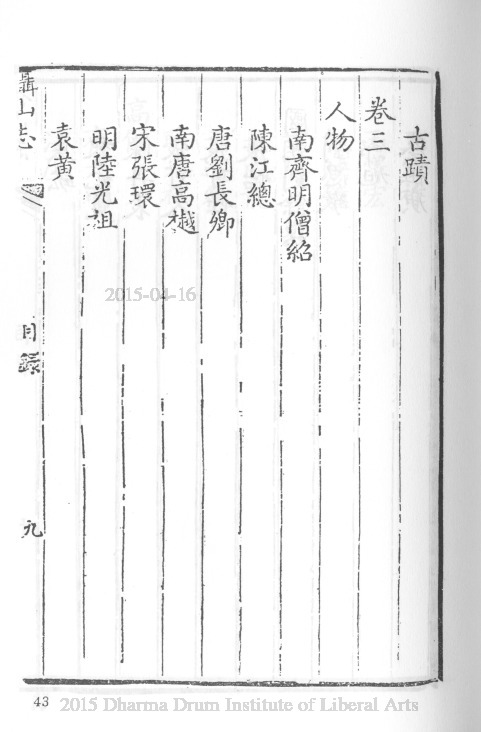 古蹟
卷三
人物
南齊明僧紹
陳江總
唐劉長卿
南唐高越
宋張瓌
明陸光祖
袁黃
攝山志
目錄
九
2015-04-16
43
2015 Dharma Drum Institute of Liberal Arts